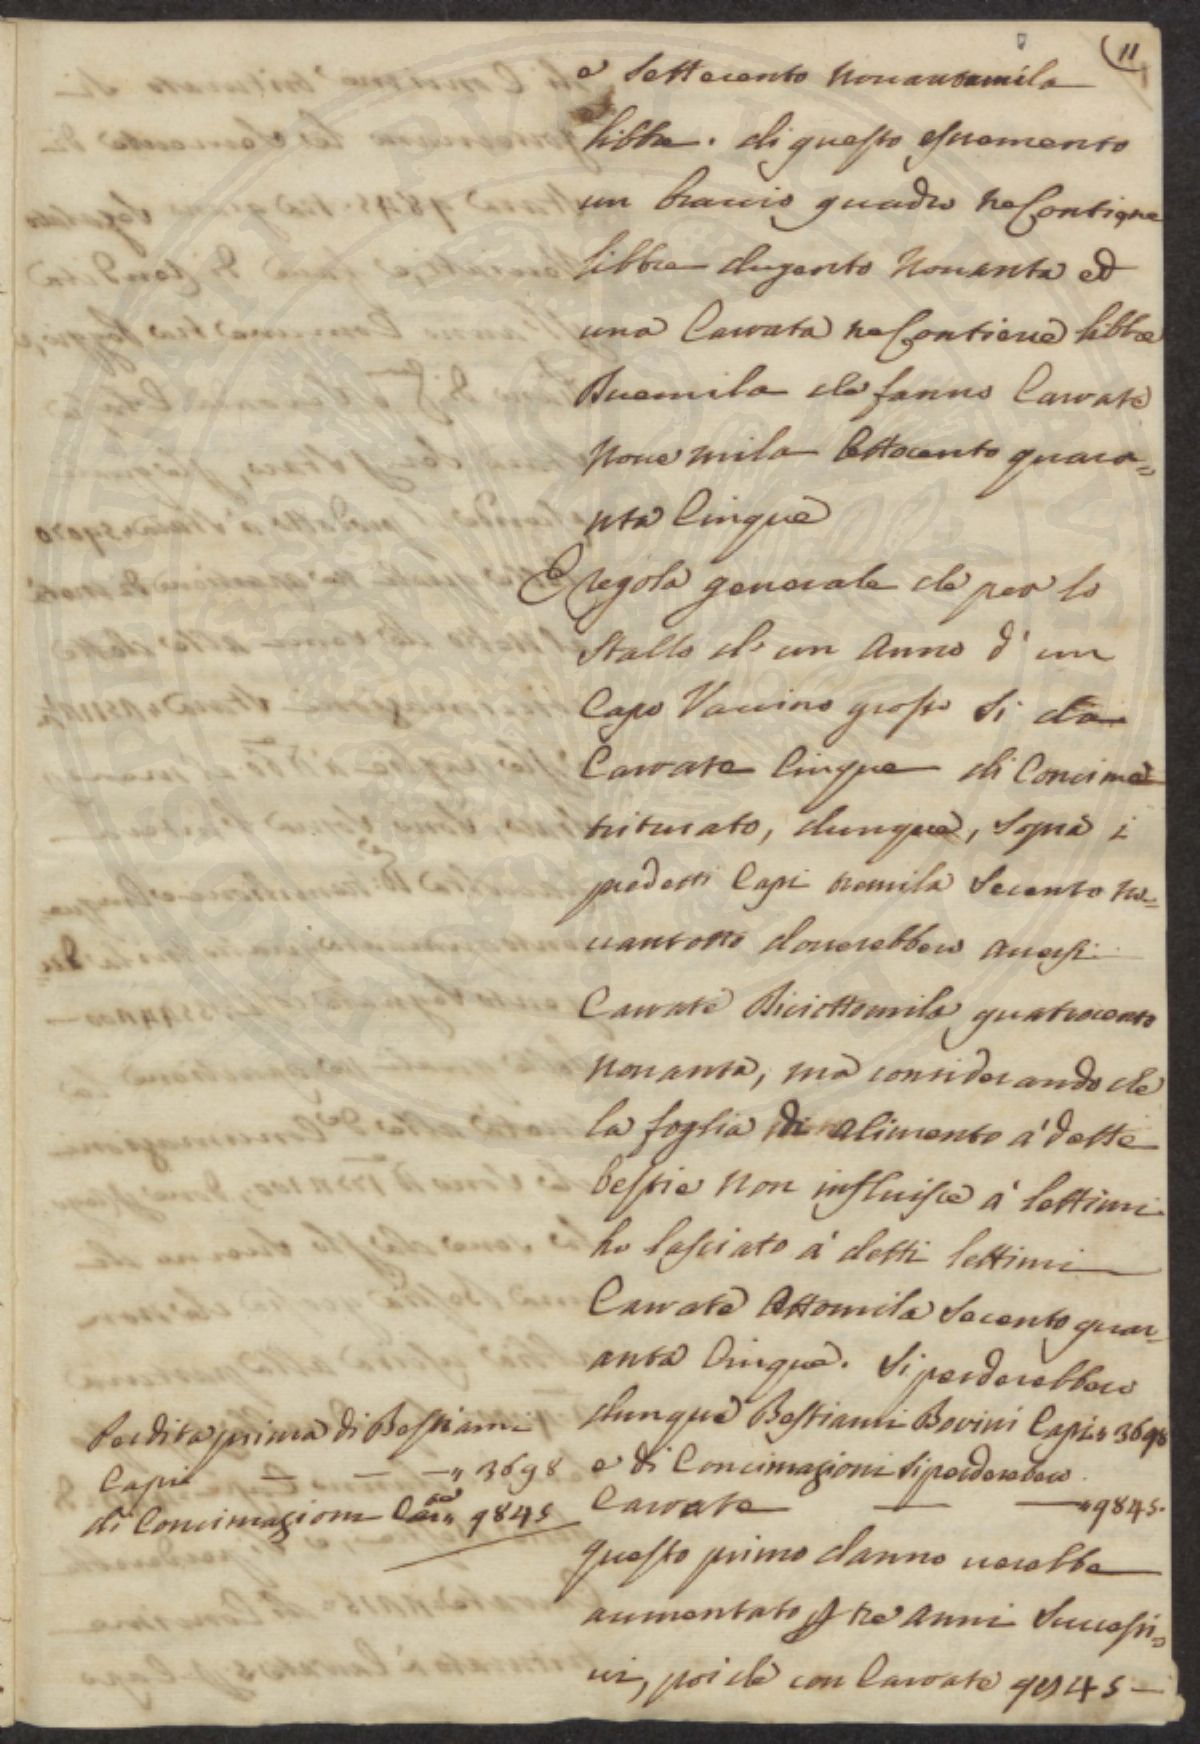 11
e Settecento Novantamila
libbre. di questo escremento
un braccio quadro ne Contiene
libbre dugento Novanta ed
una Carrata ne Contiene libbre
Duemila che fanno Carrate
Nove mila Ottocento quara=
nta Cinque
E regola generale che per lo
Stallo di un Anno d' un
Capo Vaccino grosso Si dia
Carrate Cinque di Concime
triturato, dunque, Sopra i
predetti Capi tremila Secento No=
vantotto doverebbero aversi
Carrate Diciottomila quatrocento
Novanta, mà considerando che
la foglia di alimento a' dette
bestie Non influisce a' lettimi
ho lasciato a' detti lettimi
Carrate Ottomila Secento quar=
anta Cinque. Si perderebbero
dunque Bestiami Bovini Capi " 3698
e di Concimazioni Si perderebero
Carrate — — " 9845.
questo primo danno verebbe
aumentato p tre Anni Successi=
vi, poiche con Carrate 9845 —
Perdita prima di Bestiami
Capi — — — " 3698
di Concimazioni Carte " 9845